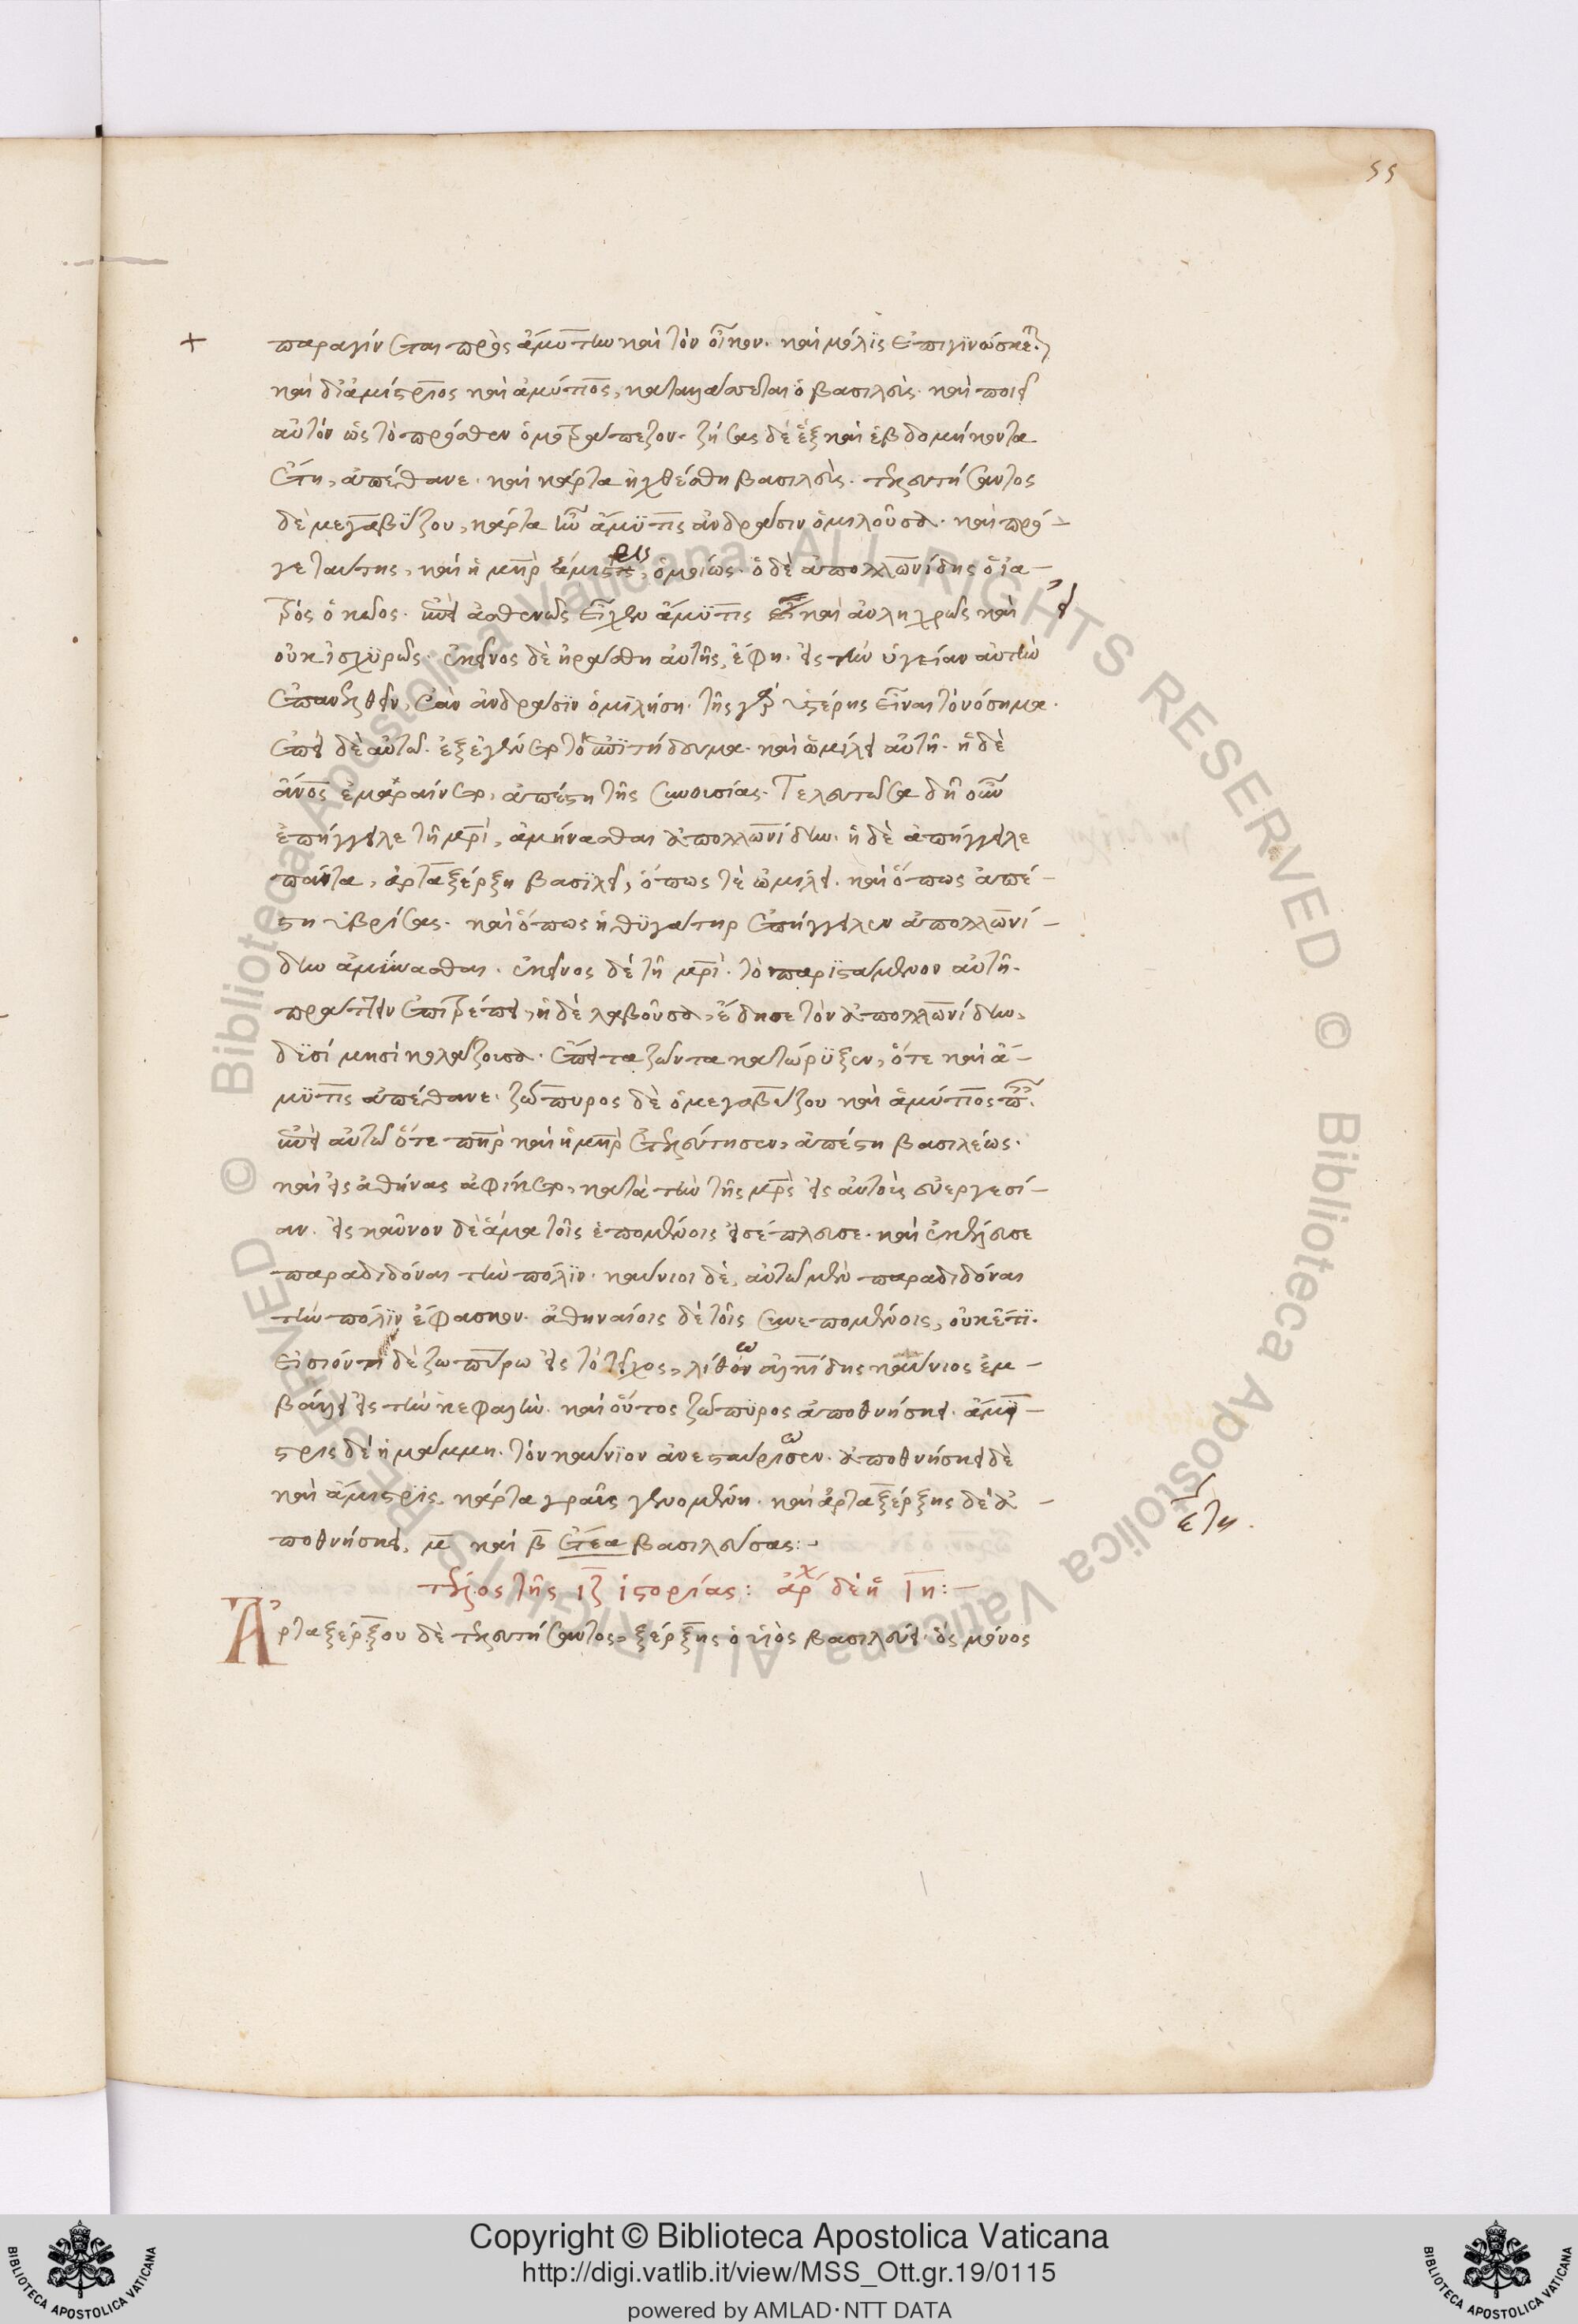 55
+ παραγίνεται πρὸς ἄμυτιν καὶ τὸν οἶκον. καὶ μόλις ἐπιγινώσκεται
καὶ δι' ἀμίστριος καὶ ἀμύτιος, καταλλάσσεται ὁ βασιλεὺς. καὶ ποιεῖ
αὐτὸν ὡς τὸ πρόσθεν ὁμοτράπεζον. ζήσας δὲ ἓξ καὶ ἑβδομήκοντα
ἔτη, ἀπέθανε. καὶ κάρτα ἠχθέσθη βασιλεὺς. τελευτήσαντος
δὲ μεγαβΰζου, κάρτα ἦν ἄμϋτις ἀνδράσιν ὁμιλοῦσα. καὶ πρό-
γε ταύτης, καὶ ἡ μηρ ἄμιστρις, ὁμοίως. ὁ δὲ ἀπολλωνίδης ὁ ἰα-
τρός ὁ κῶος. ἀσθενῶς εἶχεν ἄμϋτις εἰ καὶ ἀβληχρῶς καὶ
οὐκ ἰσχϋρῶς. ἐκεῖνος δὲ ἠράσθη αὐτῆς, ἔφη. εἰς τὴν ὑγείαν αὐτὴν
ἐπανελθεῖν, ἐὰν ἀνδράσϊν ὁμιλήση. τῆς γὰρ ὑστέρης εἶναι τὸ νόσημα.
δὲ αὐτῶ. ἐξεγένετο τὸ ἐπϊτήδευμα. καὶ ὡμίλει αὐτῆ. ἡ δὲ
ἄνος ἐμαραίνετο, ἀπέστη τῆς συνουσίας. Τελευτῶσα δὴ οὖν
ἐπήγγειλε τῆ μρὶ, ἀμήνασθαι ἀπολλωνίδην. ἡ δὲ ἀπήγγειλε
πάντα, ἀρταξέρξη βασϊλεῖ, ὅπως τὲ ὡμίλει. καὶ ὅπως ἀπέ-
στη ὑβρίσας. καὶ ὅπως ἡ θϋγάτηρ ἐπήγγειλεν ἀπολλωνί-
δην ἀμύνασθαι. ἐκεῖνος δὲ τῆ μρὶ. τὸ παρϊστάμενον αὐτῆ.
πράττειν ἐπιτρέπει, ἡ δὲ λαβοῦσα, ἔδησε τὸν ἀπολλωνίδην,
δϋσί μησὶ κολάζουσα. ἔπειτα ζῶντα κατώρϋξεν, ὅτε καὶ ἄ-
μϋτις ἀπέθανε. ζώπυρος δὲ ὁ μεγαβύζου καὶ ἀμύτιος
αὐτῶ ὅτε πηρ καὶ ἡ μηρ ἐτελεύτησεν, ἀπέστη βασιλέως.
καὶ εἰς ἀθήνας ἀφίκετο, κατὰ τὴν τῆς μρς εἰς αὐτοὺς εὐεργεσί-
αν. εἰς καῦνον δὲ ἅμα τοῖς ἑπομένοις εἰσέπλευσε. καὶ ἐκέλευσε
παραδιδόναι τὴν πόλϊν. καύνιοι δὲ, αὐτῶ μὲν παραδιδόναι
τὴν πόλϊν ἔφασκον. ἀθηναίοις δὲ τοῖς συνεπομένοις, οὐκέτϊ.
εἰσιόντι δὲ ζωπύρω εἰς τὸ τεῖχος, λίθον ἀλκίδης καύνιος ἐμ-
βάλλει εἰς τὴν κεφαλὴν. καὶ οὕτος ζώπϋρος ἀποθνήσκει. ἄμι-
στρις δὲ ἡ μάμμη. τὸν καύνϊον ἀνεσταύρισεν. ἀποθνήσκει δὲ
καὶ ἄμιστρϊς, κάρτα γραῦς γενομένη. καὶ ἀρταξέρξης δὲ ἀ-
ποθνήσκει, μ καὶ β ἔτεα βασιλεύσας:-
ἔτη.
τέλος τῆς ιζ ἱστορίας: ἀρχ δὲ ἡ ιη:-
Ἀρταξέρξου δὲ τελευτήσαντος, ξέρξης ὁ υἱὸς βασιλεύει. ὃς μόνος
© Biblioteca Apostolica Vaticana ALL RIGHTS RESERVED © Biblioteca Apostolica Vaticana ALL RIGHTS RESERVED
BIBLIOTECA APOSTOLICA VATICANA
Copyright © Biblioteca Apostolica Vaticana
http://digi.vatlib.it/view/MSS_Ott.gr.19/0115
powered by AMLAD·NTT DATA
BIBLIOTECA APOSTOLICA VATICANA